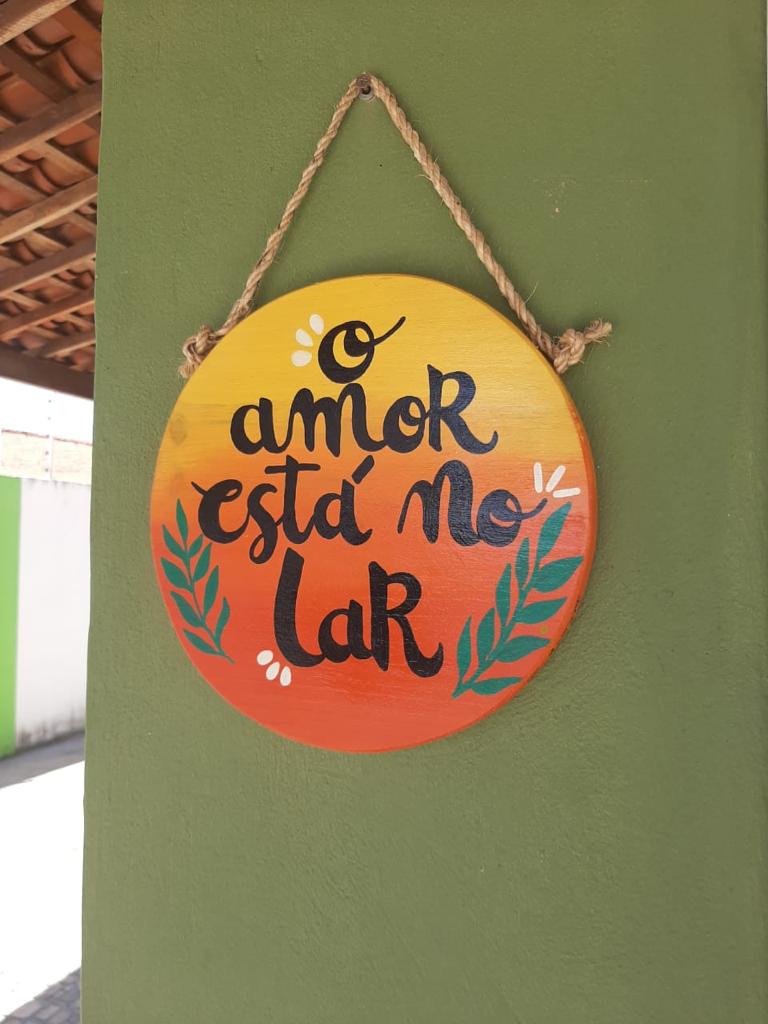 o
amor
está no
lar